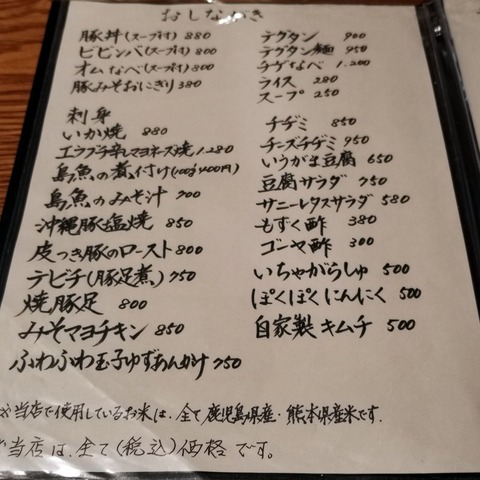 おしながき
豚丼(スープ付) 880
ビビンバ(スープ付) 800
オムなべ(スープ付) 800
豚みそおにぎり 380
刺身
いか焼 880
エラブチ辛しマヨネーズ焼 1.280
島魚の煮付け(100g400円)
島魚のみそ汁 700
沖縄豚塩焼 850
皮つき豚のロースト 800
テビチ(豚足煮) 750
焼豚足 800
みそマヨチキン 850
ふわふわ玉子ゆずあんかけ 750
テグタン 900
テグタン麺 950
チゲなべ 1.200
ライス 280
スープ 250
チヂミ 850
チーズチヂミ 950
いうがま豆腐 650
豆腐サラダ 750
サニーレタスサラダ 580
もずく酢 380
ゴーヤ酢 300
いちゃがらしゅ 500
ぽくぽくにんにく 500
自家製キムチ 500
当店で使用しているお米は、全て鹿児島県産・熊本県産米です.
当店は、全て(税込)価格です。